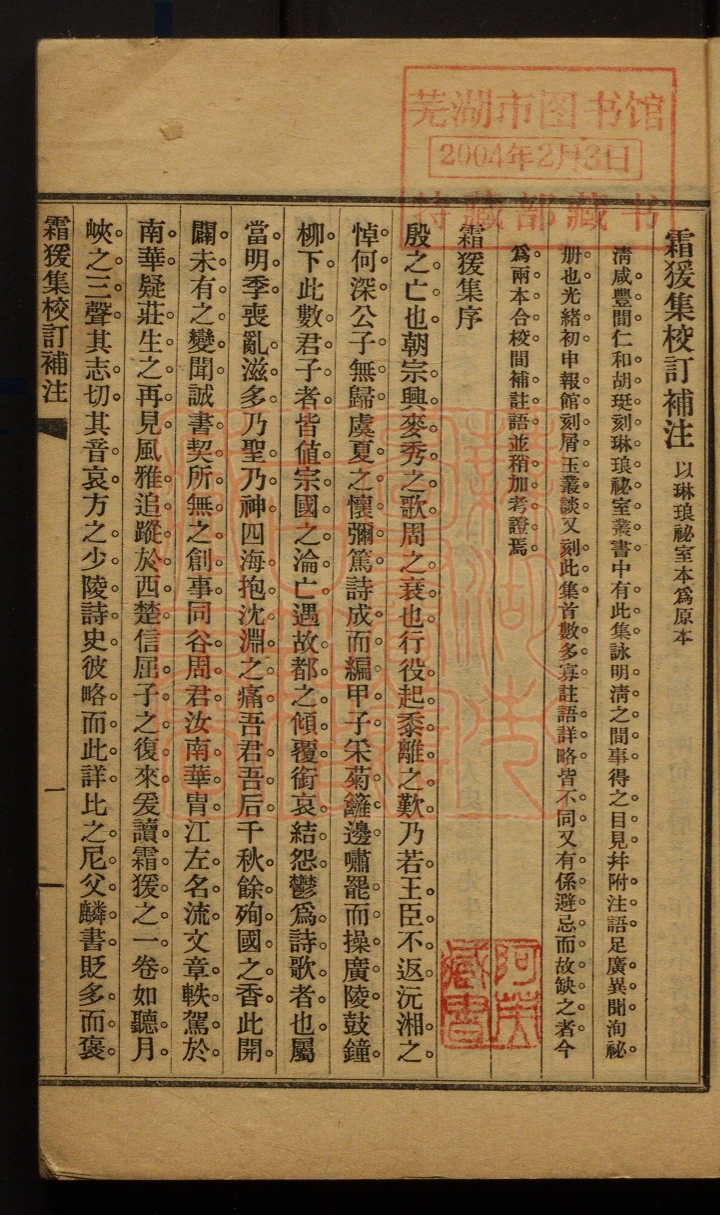 芜湖市图书馆
2004年2月3日
特藏部藏书
霜猨集校訂補注 以琳琅祕室本爲原本
清咸豐間仁和胡珽刻琳琅祕室叢書中有此集詠明清之間事得之目見幷附注語足廣異聞洵祕
册也光緒初申報館刻屑玉叢談又刻此集首數多寡註語詳略皆不同又有係避忌而故缺之者今
爲兩本合校間補註語並稍加考證焉
霜猨集序
殷之亡也朝宗興麥秀之歌周之衰也行役起黍離之歎乃若王臣不返沅湘之
悼何深公子無歸虞夏之懷彌篤詩成而編甲子采菊籬邊嘯罷而操廣陵鼓鐘
柳下此數君子者皆値宗國之淪亡遇故都之傾覆銜哀結怨鬱爲詩歌者也屬
當明季喪亂滋多乃聖乃神四海抱沈淵之痛吾君吾后千秋餘殉國之香此開
闢未有之變聞誠書契所無之創事同谷周君汝南華胄江左名流文章軼駕於
南華疑莊生之再見風雅追蹤於西楚信屈子之復來爰讀霜猨之一卷如聽月
峽之三聲其志切其音哀方之少陵詩史彼略而此詳比之尼父麟書貶多而褒
霜猨集校訂補注
一
阿英
藏書